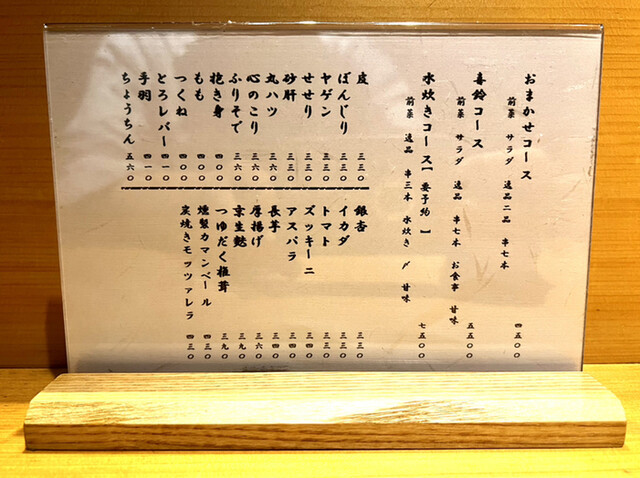 おまかせコース
前菜 サラダ 逸品二品 串七本 四五〇〇
喜鈴コース
前菜 サラダ 逸品 串七本 お食事 甘味 五五〇〇
水炊きコース【要予約】
前菜 逸品 串三本 水炊き 〆 甘味 七五〇〇
皮 三三〇
ぼんじり 三三〇
ヤゲン 三三〇
せせり 三三〇
砂肝 三三〇
丸ハツ 三三〇
心のこり 三六〇
ふりそで 三六〇
抱き身 四〇〇
もも 四〇〇
つくね 四〇〇
とろレバー 四一〇
手羽 四一〇
ちょうちん 五六〇
銀杏 三三〇
イカダ 三三〇
トマト 三三〇
ズッキーニ 三四〇
アスパラ 三四〇
長芋 三四〇
厚揚げ 三六〇
京生麩 三九〇
つゆだく椎茸 三九〇
燻製カマンベール 四三〇
炭焼きモッツァレラ 四三〇